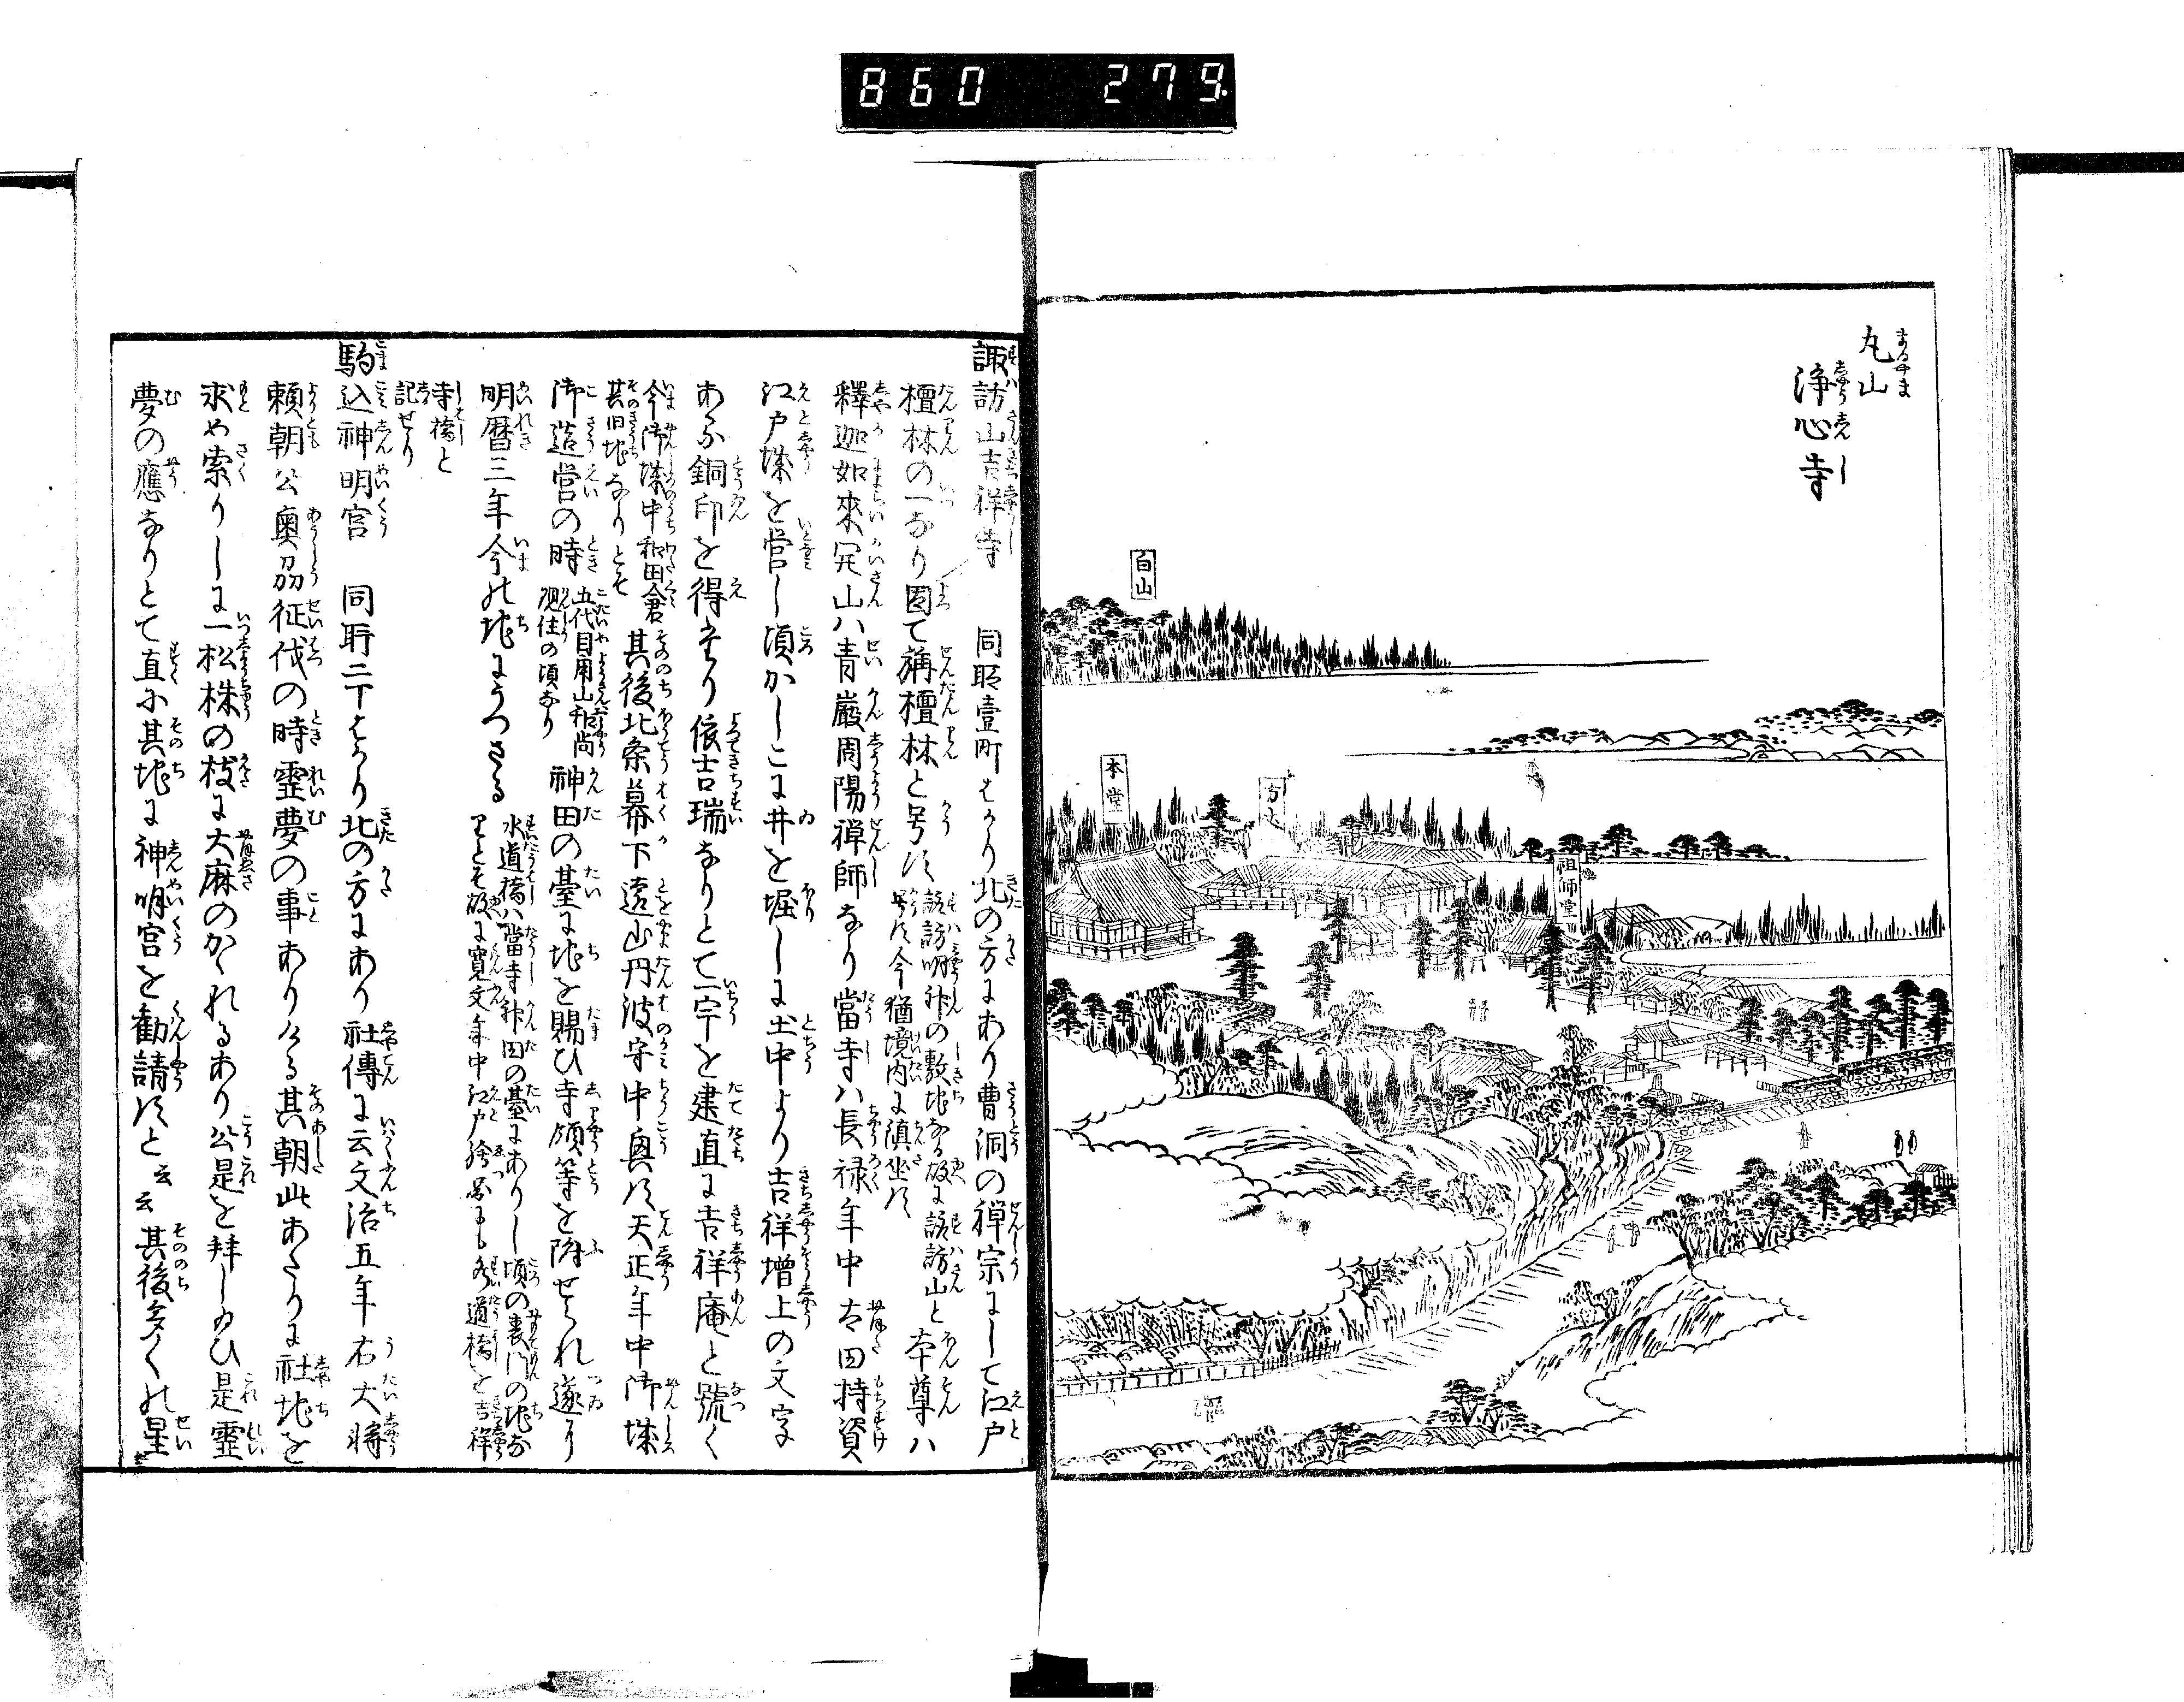 860 279
丸山
浄心寺
白山
本堂
方丈
祖師堂
諏訪山吉祥寺 同所壹町はかり北の方にあり曹洞の禅宗にして江戸
檀林の一なり因て旃檀林と号す
諏訪明神の敷地なる故に諏訪山と
号す今猶境内に鎮坐す
本尊ハ
釋迦如來開山ハ青巖周陽禅師なり當寺ハ長禄年中太田持資
江戸城を営し頃かしこに井を堀しに土中より吉祥増上の文字
ある銅印を得たり依吉瑞なりとて一宇を建直に吉祥庵と號く
今御城中和田倉
其旧地なりとそ
其後北条幕下遠山丹波守中興す天正年中御城
御造営の時
五代目用山和尚
現住の頃なり
神田の臺に地を賜ひ寺領等を附せられ遂に
明暦三年今の地にうつさる
水道橋ハ當寺神田の臺にありし頃の表門の地な
りとそ故に寛文年中江戸繪図にも水道橋を吉祥
寺橋と
記せり
駒込神明宮 同所二丁はかり北の方にあり社傳に云文治五年右大将
頼朝公奥刕征伐の時霊夢の事ありける其朝此あたりに社地を
求め索りしに一松株の枝に大麻のかゝれるあり公是を拝し給ひ是霊
夢の應なりとて直に其地に神明宮を勧請すと云云其後多くの星